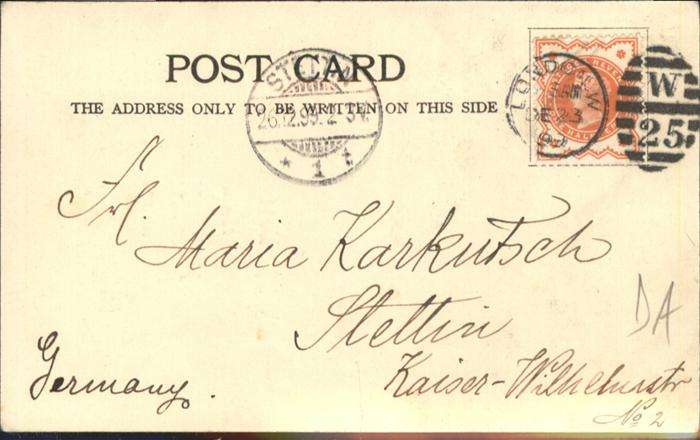 POST CARD
THE ADDRESS ONLY TO BE WRITTEN ON THIS SIDE
STETTIN
26.12.99.2-3N.
* 1 t
LONDON.W
AM
DE 23
99
W
25
HALF
Frl. Maria Karkutsch
Stettin
Kaiser-Wilhelmstr
No 2
Germany.
DA